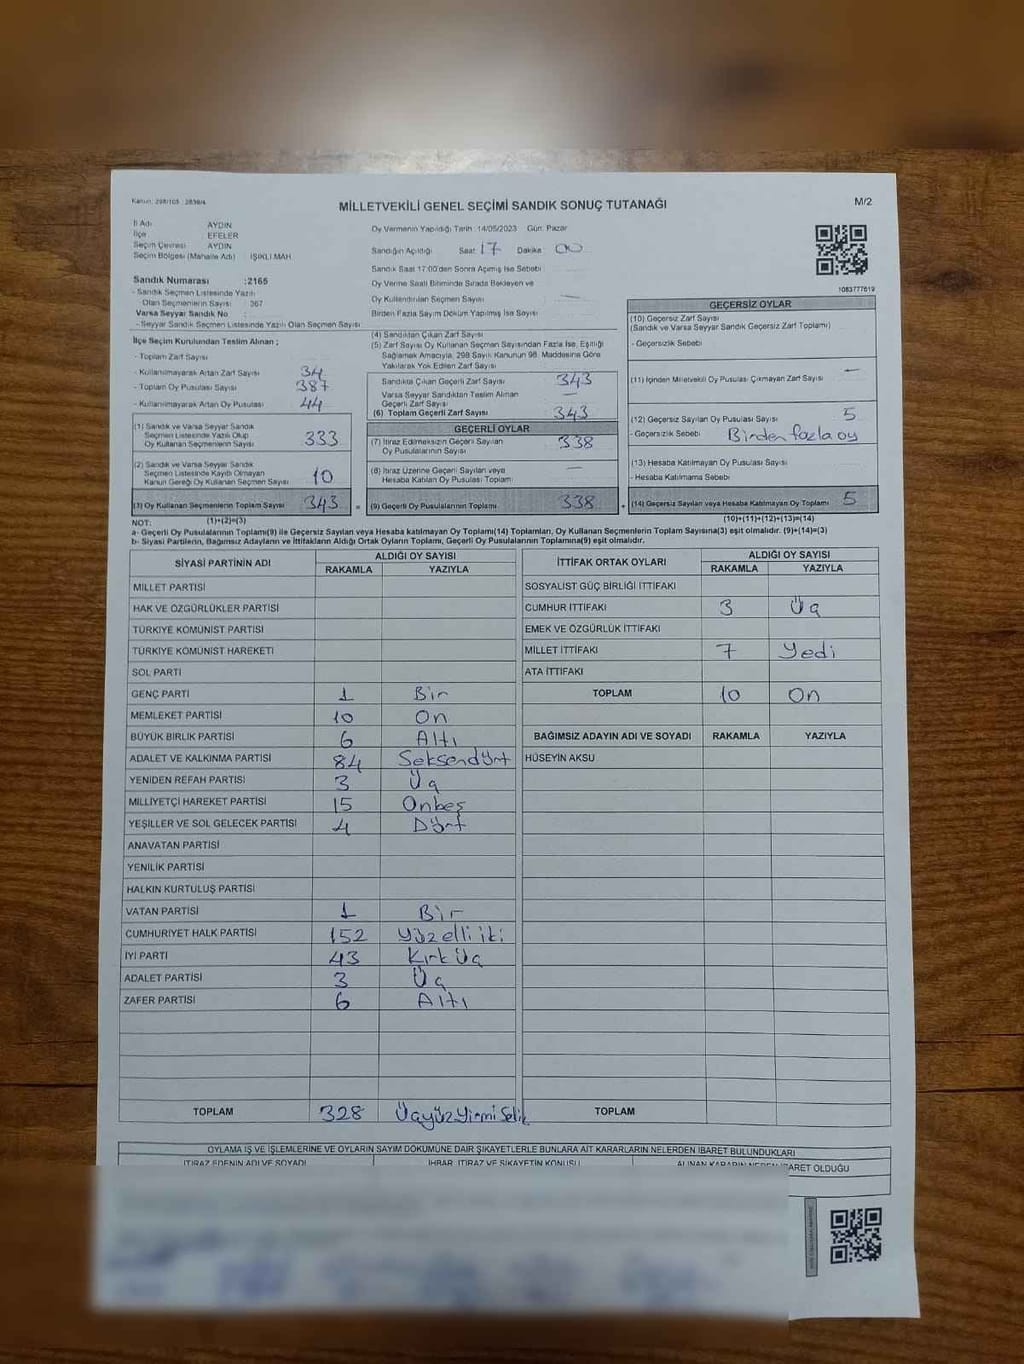 Kanun: 298/105 : 2839/4
MİLLETVEKİLİ GENEL SEÇİMİ SANDIK SONUÇ TUTANAĞI
M/2
İl Adı AYDIN
İlçe EFELER
Seçim Çevresi AYDIN
Seçim Bölgesi (Mahalle Adı) IŞIKLI MAH
Sandık Numarası :2165
- Sandık Seçmen Listesinde Yazılı
Olan Seçmenlerin Sayısı : 367
Varsa Seyyar Sandık No
- Seyyar Sandık Seçmen Listesinde Yazılı Olan Seçmen Sayısı
Oy Vermenin Yapıldığı Tarih :14/05/2023 Gün: Pazar
Sandığın Açıldığı Saat: 17 Dakika: 00
Sandık Saat 17:00'den Sonra Açılmış İse Sebebi
Oy Verme Saati Bitiminde Sırada Bekleyen ve
Oy Kullandırılan Seçmen Sayısı —
Birden Fazla Sayım Döküm Yapılmış İse Sayısı
1083777619
İlçe Seçim Kurulundan Teslim Alınan ;
- Toplam Zarf Sayısı
- Kullanılmayarak Artan Zarf Sayısı 34
- Toplam Oy Pusulası Sayısı 387
- Kullanılmayarak Artan Oy Pusulası 44
(1) Sandık ve Varsa Seyyar Sandık
Seçmen Listesinde Yazılı Olup
Oy Kullanan Seçmenlerin Sayısı 333
(2) Sandık ve Varsa Seyyar Sandık
Seçmen Listesinde Kayıtlı Olmayan
Kanun Gereği Oy Kullanan Seçmen Sayısı 10
(3) Oy Kullanan Seçmenlerin Toplam Sayısı 343
(1)+(2)=(3)
(4) Sandıktan Çıkan Zarf Sayısı
(5) Zarf Sayısı Oy Kullanan Seçmen Sayısından Fazla İse, Eşitliği
Sağlamak Amacıyla, 298 Sayılı Kanunun 98. Maddesine Göre
Yakılarak Yok Edilen Zarf Sayısı
Sandıkta Çıkan Geçerli Zarf Sayısı 343
Varsa Seyyar Sandıktan Teslim Alınan
Geçerli Zarf Sayısı —
(6) Toplam Geçerli Zarf Sayısı 343
GEÇERLİ OYLAR
(7) İtiraz Edilmeksizin Geçerli Sayılan
Oy Pusulalarının Sayısı 338
(8) İtiraz Üzerine Geçerli Sayılan veya
Hesaba Katılan Oy Pusulası Toplamı —
= (9) Geçerli Oy Pusulalarının Toplamı 338
GEÇERSİZ OYLAR
(10) Geçersiz Zarf Sayısı
(Sandık ve Varsa Seyyar Sandık Geçersiz Zarf Toplamı)
- Geçersizlik Sebebi
(11) İçinden Milletvekili Oy Pusulası Çıkmayan Zarf Sayısı —
(12) Geçersiz Sayılan Oy Pusulası Sayısı 5
- Geçersizlik Sebebi Birden fazla oy
(13) Hesaba Katılmayan Oy Pusulası Sayısı
- Hesaba Katılmama Sebebi
+ (14) Geçersiz Sayılan veya Hesaba Katılmayan Oy Toplamı 5
(10)+(11)+(12)+(13)=(14)
NOT:
a- Geçerli Oy Pusulalarının Toplamı(9) ile Geçersiz Sayılan veya Hesaba katılmayan Oy Toplamı(14) Toplamları, Oy Kullanan Seçmenlerin Toplam Sayısına(3) eşit olmalıdır. (9)+(14)=(3)
b- Siyasi Partilerin, Bağımsız Adayların ve İttifakların Aldığı Ortak Oyların Toplamı, Geçerli Oy Pusulalarının Toplamına(9) eşit olmalıdır.
SİYASİ PARTİNİN ADI ALDIĞI OY SAYISI
RAKAMLA YAZIYLA
MİLLET PARTİSİ
HAK VE ÖZGÜRLÜKLER PARTİSİ
TÜRKİYE KOMÜNİST PARTİSİ
TÜRKİYE KOMÜNİST HAREKETİ
SOL PARTİ
GENÇ PARTİ 1 Bir
MEMLEKET PARTİSİ 10 On
BÜYÜK BİRLİK PARTİSİ 6 Altı
ADALET VE KALKINMA PARTİSİ 84 Seksendört
YENİDEN REFAH PARTİSİ 3 Üç
MİLLİYETÇİ HAREKET PARTİSİ 15 Onbeş
YEŞİLLER VE SOL GELECEK PARTİSİ 4 Dört
ANAVATAN PARTİSİ
YENİLİK PARTİSİ
HALKIN KURTULUŞ PARTİSİ
VATAN PARTİSİ 1 Bir
CUMHURİYET HALK PARTİSİ 152 Yüzelli iki
İYİ PARTİ 43 Kırk Üç
ADALET PARTİSİ 3 Üç
ZAFER PARTİSİ 6 Altı
TOPLAM 328
İTTİFAK ORTAK OYLARI ALDIĞI OY SAYISI
RAKAMLA YAZIYLA
SOSYALİST GÜÇ BİRLİĞİ İTTİFAKI
CUMHUR İTTİFAKI 3 Üç
EMEK VE ÖZGÜRLÜK İTTİFAKI
MİLLET İTTİFAKI 7 Yedi
ATA İTTİFAKI
TOPLAM 10 On
BAĞIMSIZ ADAYIN ADI VE SOYADI RAKAMLA YAZIYLA
HÜSEYİN AKSU
TOPLAM
OYLAMA İŞ VE İŞLEMLERİNE VE OYLARIN SAYIM DÖKÜMÜNE DAİR ŞİKAYETLERLE BUNLARA AİT KARARLARIN NELERDEN İBARET BULUNDUKLARI
İTİRAZ EDENİN ADI VE SOYADI İHBAR, İTİRAZ VE ŞİKAYETİN KONUSU ALINAN KARARIN NEDEN İBARET OLDUĞU